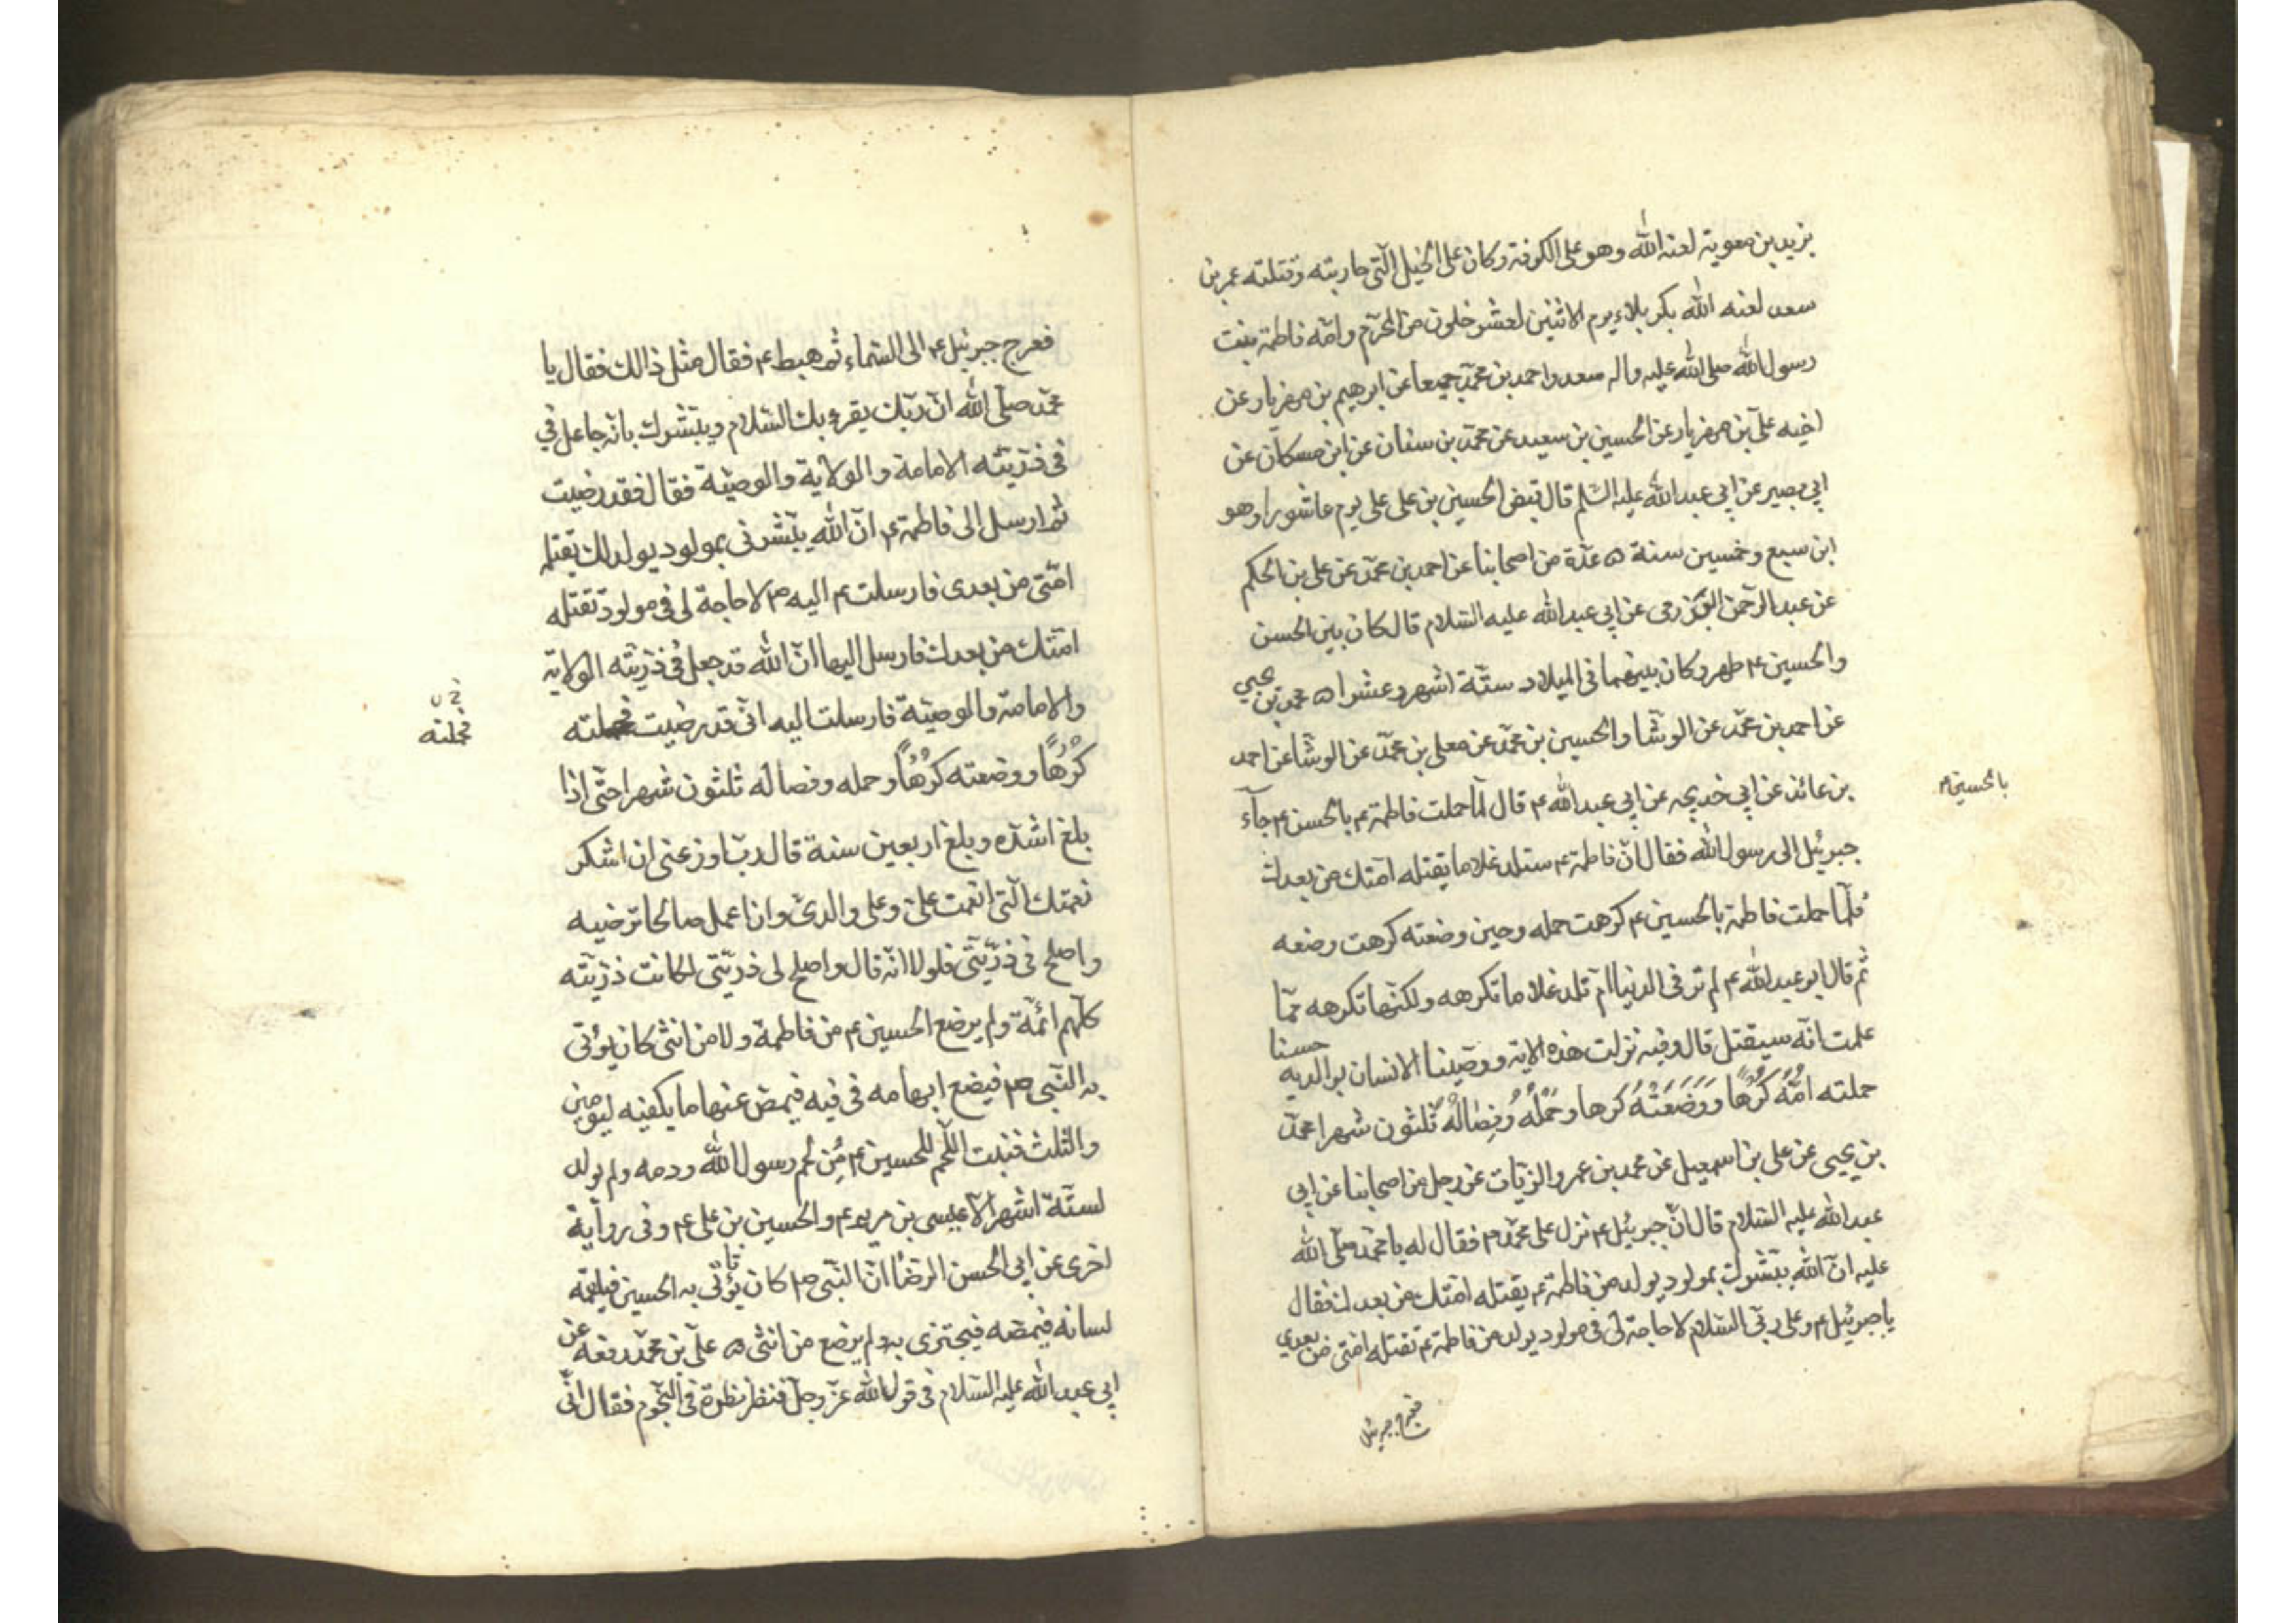 يزيد بن معوية لعنه الله وهو على الكوفة وكان على الخيل التى حاربته وقتلته عمر بن
سعد لعنه الله بكربلاء يوم الاثنين لعشر خلون من المحرّم وامّه فاطمة بنت
رسول الله صلى الله عليه واله سعد واحمد بن محمّد جميعا عن ابرهيم بن مهزيار عن
اخيه علىّ بن مهزيار عن الحسين بن سعيد عن محمّد بن سنان عن ابن مسكان عن
ابى بصير عن ابى عبد الله عليه السّلم قال قبض الحسين بن على على يوم عاشورا وهو
ابن سبع وخمسين سنة ۵ عدّة من اصحابنا عن احمد بن محمّد عن على بن الحكم
عن عبد الرّحمن العزرمى عن ابى عبد الله عليه السّلام قال كان بين الحسن
والحسين ع طهر وكان بينهما فى الميلاد ستّة اشهر وعشرا ۵ محمد بن يحيي
عن احمد بن محمّد عن الوشّا والحسين بن محمّد عن معلى بن محمّد عن الوشّا عن احمد
بن عائذ عن ابى خديجه عن ابى عبد الله ع قال لمّا حملت فاطمة ع بالحسن ع جآء
بالحسين ع
جبرئيل الى رسول الله فقال انّ فاطمة ع ستلد غلاما يقتله امّتك من بعدك
فلمّا حملت فاطمة بالحسين ع كرهت حمله وحين وضعته كرهت وضعه
ثم قال ابو عبد الله ع لم تر فى الدنيا امّ تلد غلاما تكرهه ولكنّها تكرهه ممّا
علمت انّه سيقتل قال وفيه نزلت هذه الاية ووصّينا الانسان بوالديه حسنا
حملته اُمُّهُ كُرْهًا وَوَضَعَتْهُ كرها وحَمْلُهُ وَفِصَالُهُ ثَلثون شهرا محمّد
بن يحيى عن على بن اسمعيل عن محمد بن عمرو الزيّات عن رجل من اصحابنا عن ابى
عبد الله عليه السّلام قال انّ جبرئيل ع نزل على محمّد ص فقال له يا محمّد صلّى الله
عليه انّ الله يبشّرك بمولود يولد من فاطمة ع يقتله امّتك من بعدك فقال
يا جبرئيل ع وعلى ربّى السّلام لا حاجة لى فى مولود يولد من فاطمة ع تقتله امّتى من بعدى
فعرج جبرئيل
فعرج جبرئيل ع الى السّماء ثم هبط ع فقال مثل ذالك فقال يا
محمّد صلّى الله انّ ربّك يقرء بك السّلام ويبّشرك بانّه جاعل فى
فى ذرّيّته الامامة والولاية والوصيّة فقال فقد رضيت
ثم ارسل الى فاطمة ع انّ الله يبّشرنى بمولود يولد لك يقتله
امّتى من بعدى فارسلت ع اليه ص لا حاجة لى فى مولود تقتله
امّتك من بعدك فارسل اليها انّ الله قد جعل فى ذرّيّته الولاية
والامامة والوصيّة فارسلت اليه انّى قد رضيت فحملته
فحملته
كُرْهًا ووضعته كُرْهًا وحمله وفصاله ثلثون شهرا حتّى اذا
بلغ اشدّه وبلغ اربعين سنة قال ربّ اوزعنى ان اشكر
نعمتك الّتى انعمت علىّ وعلى والدىّ وان اعمل صالحا ترضيه
واصلح فى ذرّيّتى فلولا انّه قال واصلح لى ذرّيّتى لكانت ذرّيّته
كلّهم ائمّة ولم يرضع الحسين ع من فاطمة ولا من انثى كان يؤتى
به النّبى ص فيضع ابهامه فى فيه فيمصّ عنها ما يكفيه ليومين
والثلث فنبت اللّحم للحسين ع مِن لحم رسول الله ودمه ولم يولد
لستّة اشهر الّا عيسى بن مريم ع والحسين بن على ع وفى رواية
اخرى عن ابى الحسن الرّضا انّ النّبى ص كان يؤتى به الحسين فيلقمه
لسانه فيمصّه فيجتزى به ولم يرضع من انثى ۵ علىّ بن محمّد رفعه عن
ابى عبد الله عليه السّلام فى قول الله عزّ وجلّ فنظر نظرة فى النّجوم فقال انّى